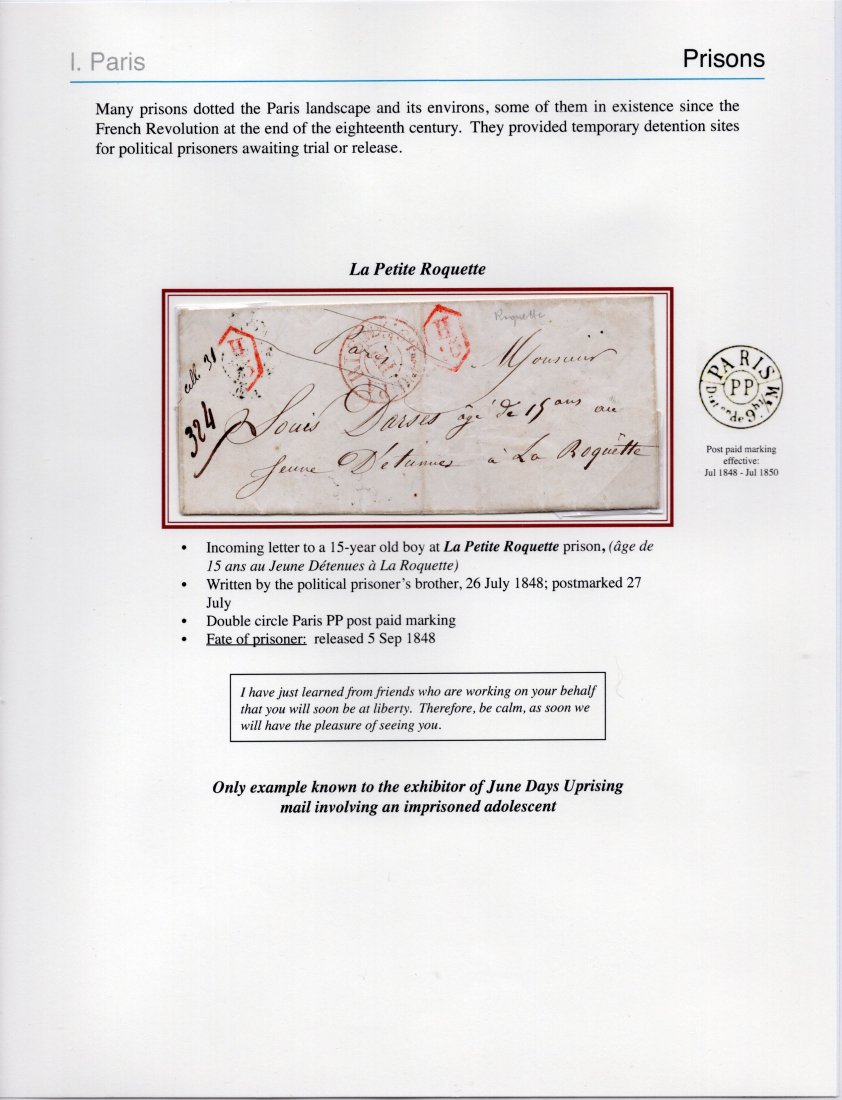 I. Paris
Prisons
Many prisons dotted the Paris landscape and its environs, some of them in existence since the
French Revolution at the end of the eighteenth century. They provided temporary detention sites
for political prisoners awaiting trial or release.
La Petite Roquette
Roquette
Paris
Monsieur
324
Louis Darses âgé de 15 ans au
Jeune Détenues à La Roquette
PARIS
PP
Post paid marking
effective:
Jul 1848 - Jul 1850
• Incoming letter to a 15-year old boy at La Petite Roquette prison, (âge de
15 ans au Jeune Détenues à La Roquette)
• Written by the political prisoner's brother, 26 July 1848; postmarked 27
July
• Double circle Paris PP post paid marking
• Fate of prisoner: released 5 Sep 1848
I have just learned from friends who are working on your behalf
that you will soon be at liberty. Therefore, be calm, as soon we
will have the pleasure of seeing you.
Only example known to the exhibitor of June Days Uprising
mail involving an imprisoned adolescent